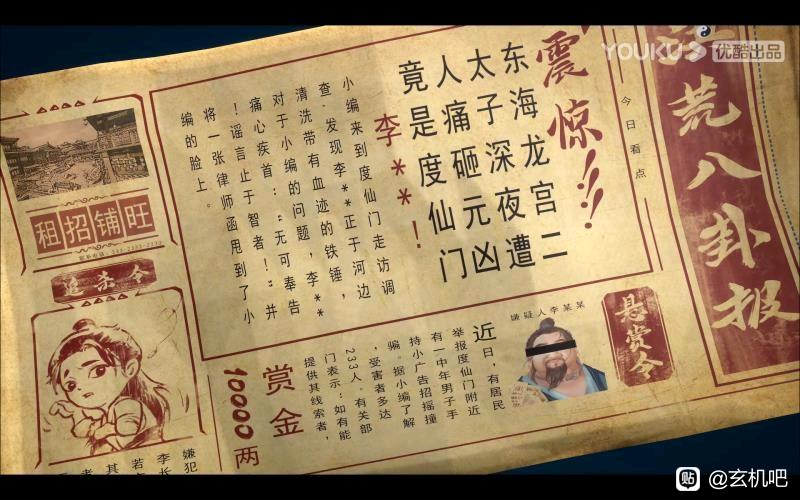 YOUKU 优酷出品
荒八卦报
今日看点
震惊!!!
东海龙宫二
太子深夜遭
人痛砸元凶
竟是度仙门
李**!
小编来到度仙门走访调
查，发现李**正于河边
清洗带有血迹的铁锤，
对于小编的问题，李**
痛心疾首："无可奉告
！谣言止于智者！"并
将一张律师函甩到了小
编的脸上。
悬赏令
嫌疑人李某某
近日，有居民
举报度仙门附近
有一中年男子手
持小广告招摇撞
骗。据小编了解
，受害者多达
233人，有关部
门表示：如有能
提供其线索者，
赏金
10000两
旺铺招租
追杀令
嫌犯
李长
若
其
者
贴 @玄机吧